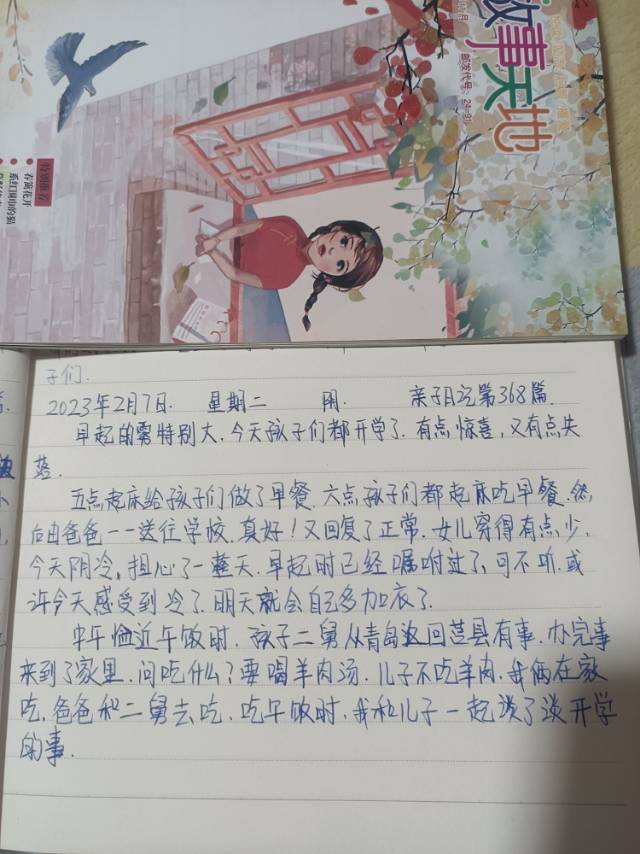 故事天地
邮发代号：24-91
春篱花开
子们.
2023年2月7日. 星期二 阴. 亲子日记第368篇.
早起的雾特别大.今天孩子们都开学了.有点惊喜,又有点失
落.
五点起床给孩子们做了早餐.六点孩子们都起床吃早餐.然
后由爸爸一一送往学校.真好!又回复了正常.女儿穿得有点少,
今天阴冷,担心了一整天.早起时已经嘱咐过了,可不听.或
许今天感受到冷了.明天就会自己多加衣了.
中午临近午饭时.孩子二舅从青岛返回莒县有事.办完事
来到了家里.问吃什么?要喝羊肉汤.儿子不吃羊肉.我俩在家
吃,爸爸和二舅去吃.吃午饭时.我和儿子一起谈了谈开学
的事.